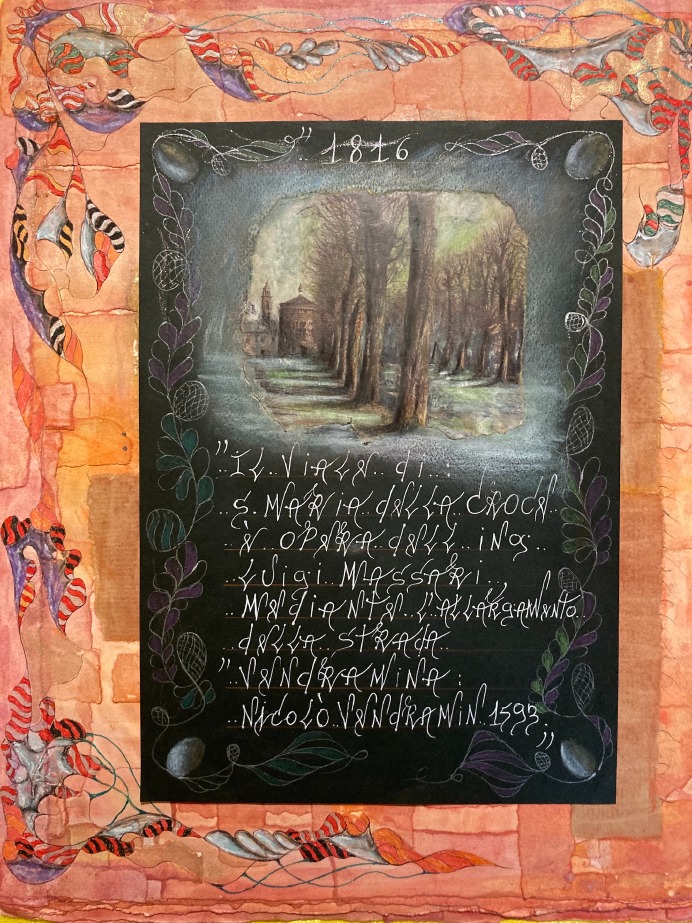 " 1816
"IL ViALE di :
S. MARIA dELLA CROCE
È OPERA dELL ing.
Luigi MASSARi.,
MEdiANTE L'ALLARgAMENTO
dELLA STRAdA
"VENdRAMiNA :
NiCOLÒ VENdRAMiN 1593."